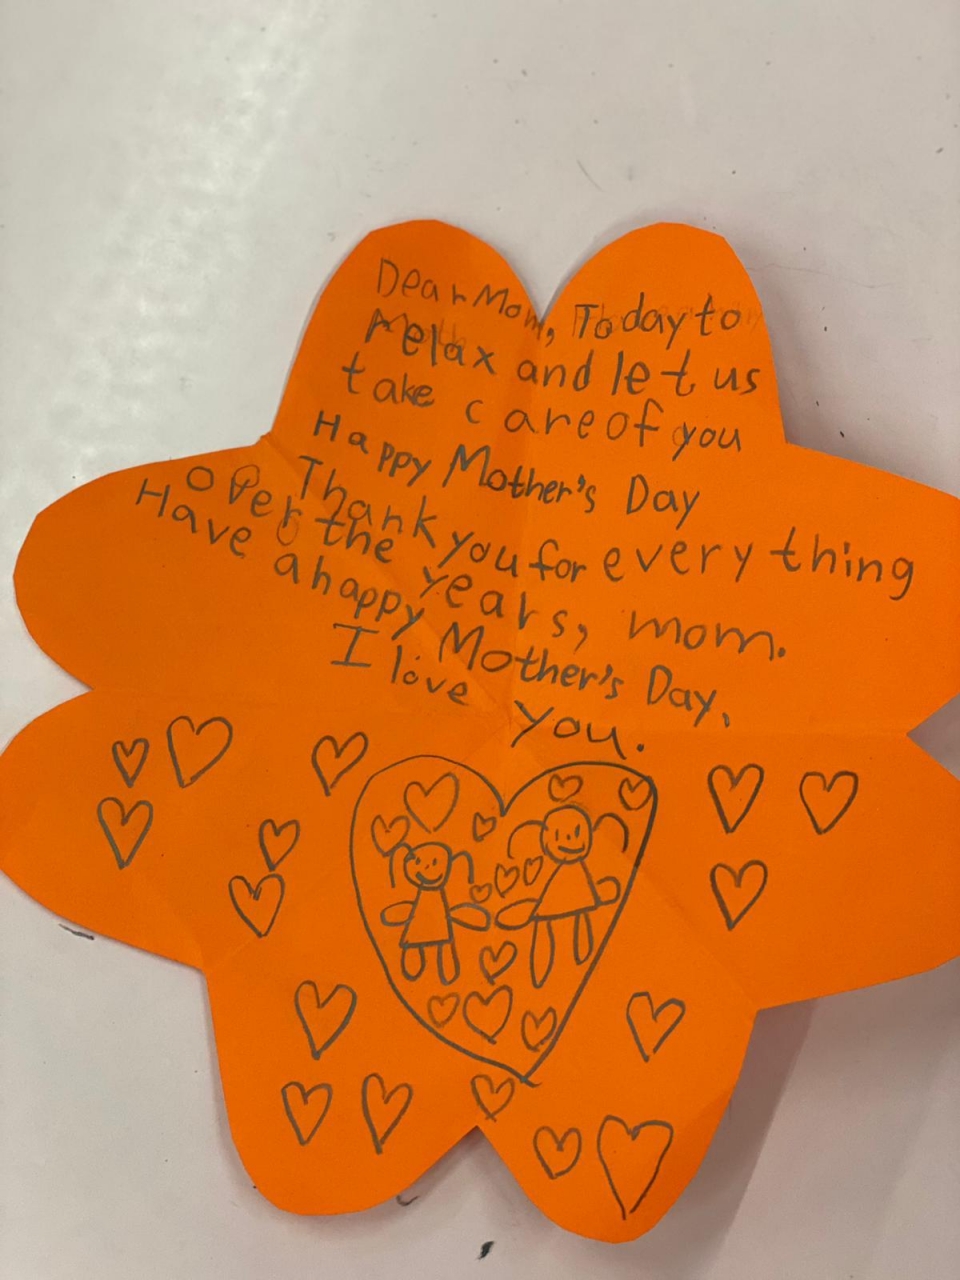 Dear Mom, Today to
relax and let us
take care of you
Happy Mother's Day
Thank you for everything
over the years, mom.
Have a happy Mother's Day,
I love you.